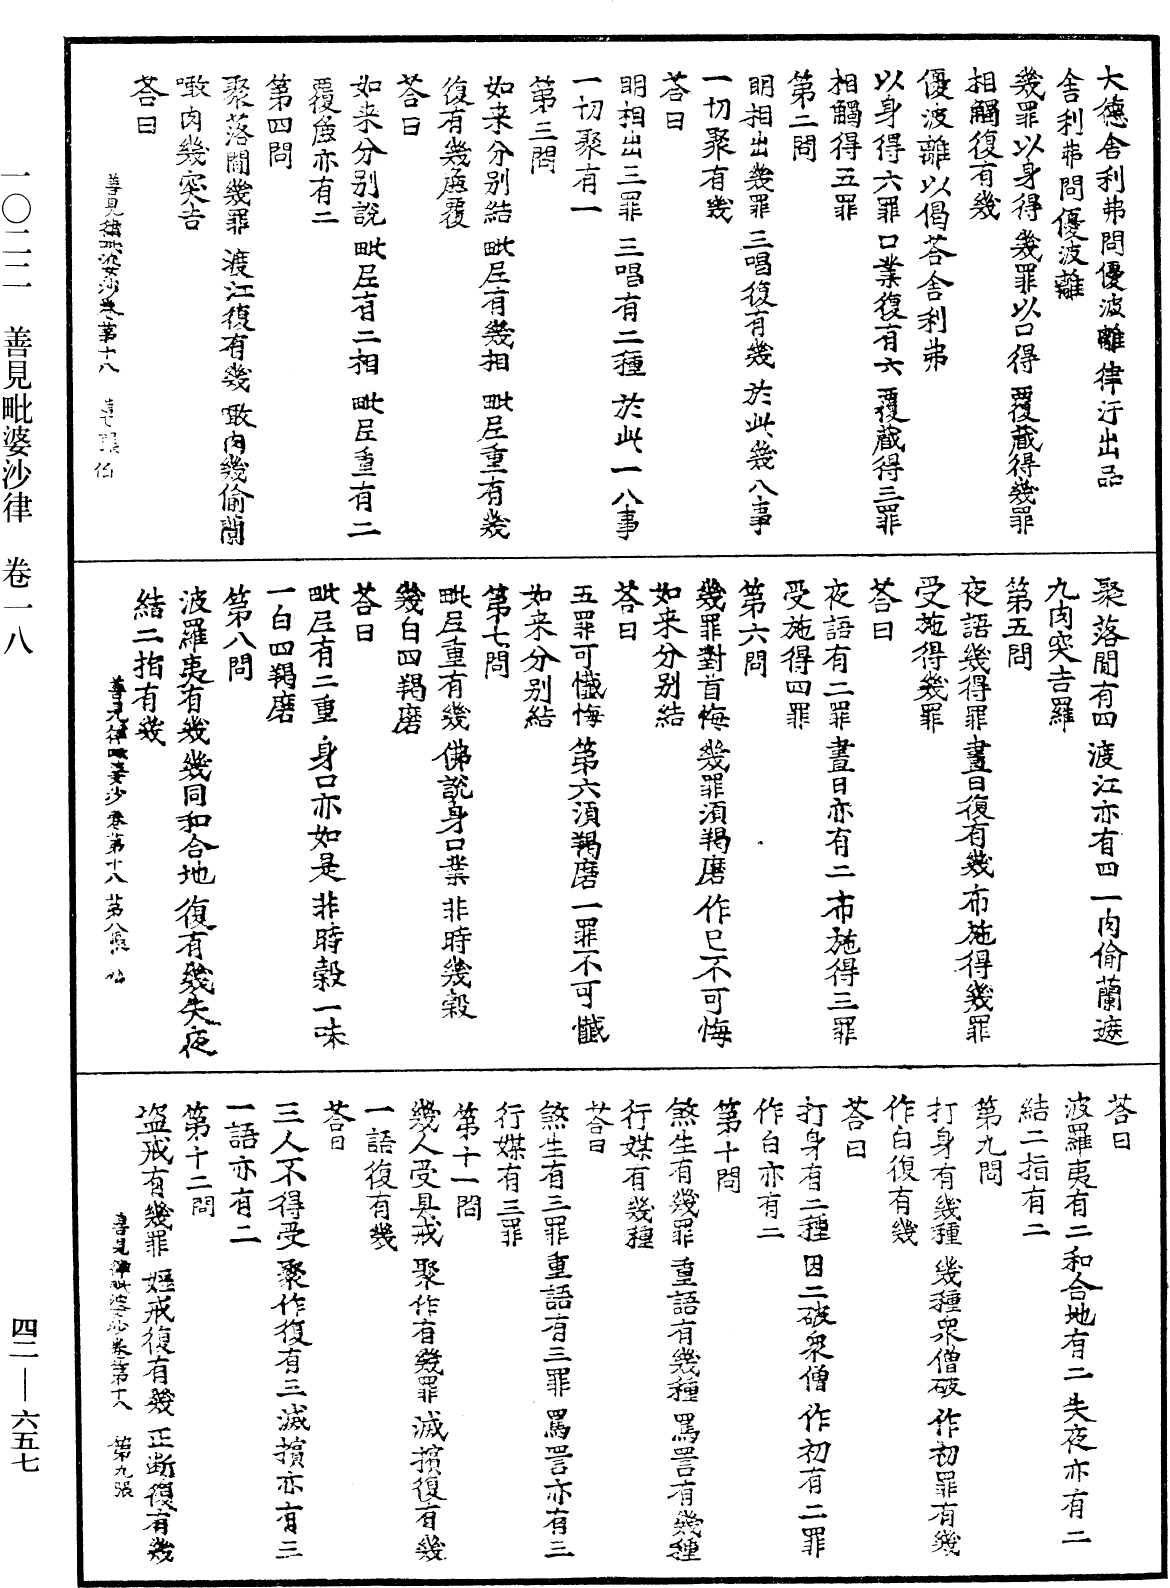 大德舍利弗問優波離律汙出品
舍利弗問優波離
幾罪以身得　幾罪以口得　覆藏得幾罪
相觸復有幾
優波離以偈荅舍利弗
以身得六罪　口業復有六　覆藏得三罪
相觸得五罪
第二問
明相出幾罪　三唱復有幾　於此幾八事
一切聚有幾
荅曰
明相出三罪　三唱有二種　於此一八事
一切聚有一
第三問
如来分别結　毗𡰱有幾相　毗𡰱重有幾
復有幾䖏覆
荅曰
如来分别說　毗𡰱有二相　毗𡰱重有二
覆䖏亦有二
第四問
聚落閒幾罪　渡江復有幾　噉肉幾偷蘭
噉肉幾突吉
荅曰
善見律毗婆沙卷第十八　第七張　伯
聚落閒有四　渡江亦有四　一肉偷蘭遮
九肉突吉羅
第五問
夜語幾得罪　晝日復有幾　布施得幾罪
受施得幾罪
荅曰
夜語有二罪　晝日亦有二　布施得三罪
受施得四罪
第六問
幾罪對首悔　幾罪須羯磨　作已不可悔
如来分别結
荅曰
五罪可懺悔　第六須羯磨　一罪不可懺
如来分别結
第七問
毗𡰱重有幾　佛說身口業　非時幾穀
幾白四羯磨
荅曰
毗𡰱有二重　身口亦如是　非時穀一味
一白四羯磨
第八問
波羅夷有幾　幾同和合地　復有幾失夜
結二指有幾
善見律毗婆沙卷第十八　第八張　伯
荅曰
波羅夷有二　和合地有二　失夜亦有二
結二指有二
第九問
打身有幾種　幾種衆僧破　作初罪有幾
作白復有幾
荅曰
打身有二種　因二破衆僧　作初有二罪
作白亦有二
第十問
煞生有幾罪　重語有幾種　罵詈有幾種
行媒有幾種
荅曰
煞生有三罪　重語有三罪　罵詈亦有三
行媒有三罪
第十一問
幾人受具戒　聚作有幾罪　滅擯復有幾
一語復有幾
荅曰
三人不得受　聚作復有三　滅擯亦有三
一語亦有二
第十二問
盜戒有幾罪　婬戒復有幾　正斷復有幾
善見律毗婆沙卷第十八　第九張
一〇二二　善見毗婆沙律　卷一八
四二—六五七